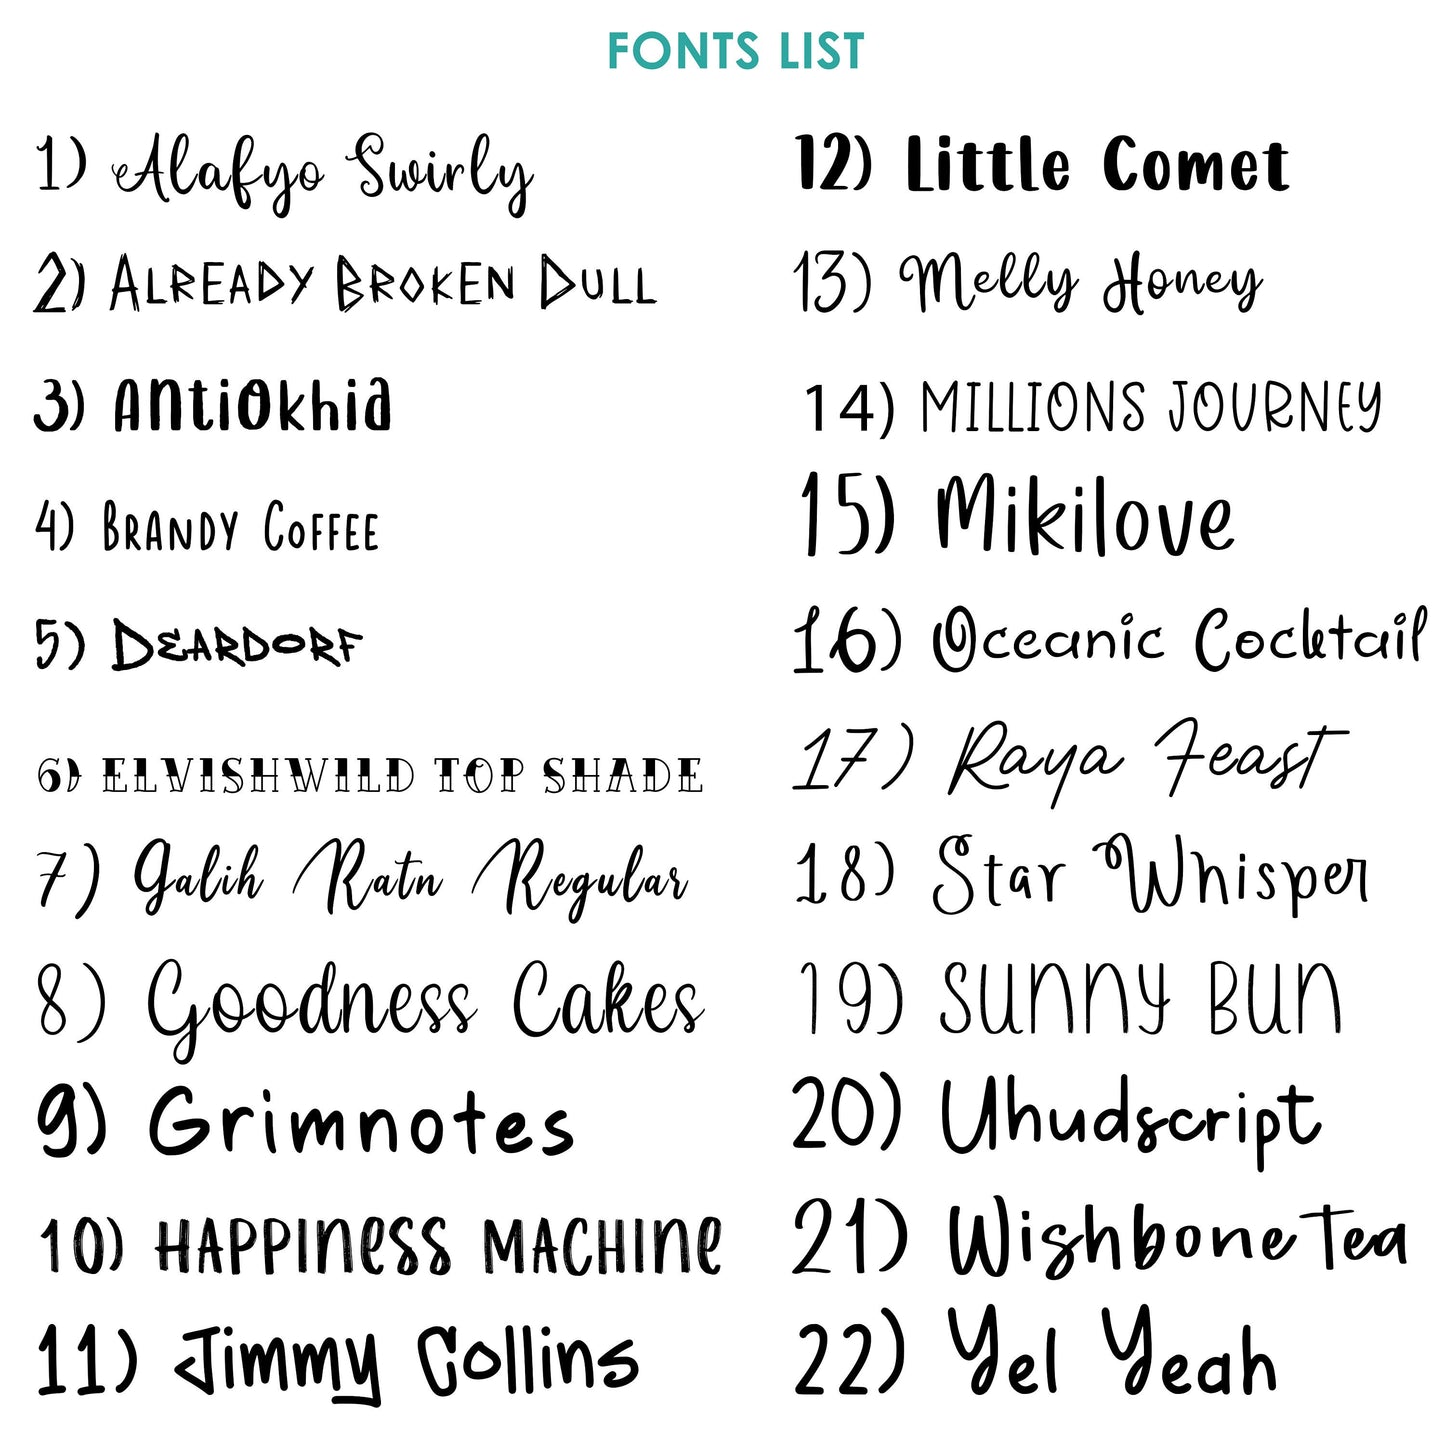 FONTS LIST
1) Alafyo Swirly
2) ALREADY BROKEN DULL
3) AntiOkhia
4) BRANDY COFFEE
5) DEARDORF
6) ELVISHWILD TOP SHADE
7) Galih Ratn Regular
8) Goodness Cakes
9) Grimnotes
10) HAPPINeSS MACHINe
11) Jimmy Collins
12) Little Comet
13) Melly Honey
14) MILLIONS JOURNEY
15) Mikilove
16) Oceanic Cocktail
17) Raya Feast
18) Star Whisper
19) SUNNY BUN
20) Uhudscript
21) Wishbone Tea
22) Yel Yeah